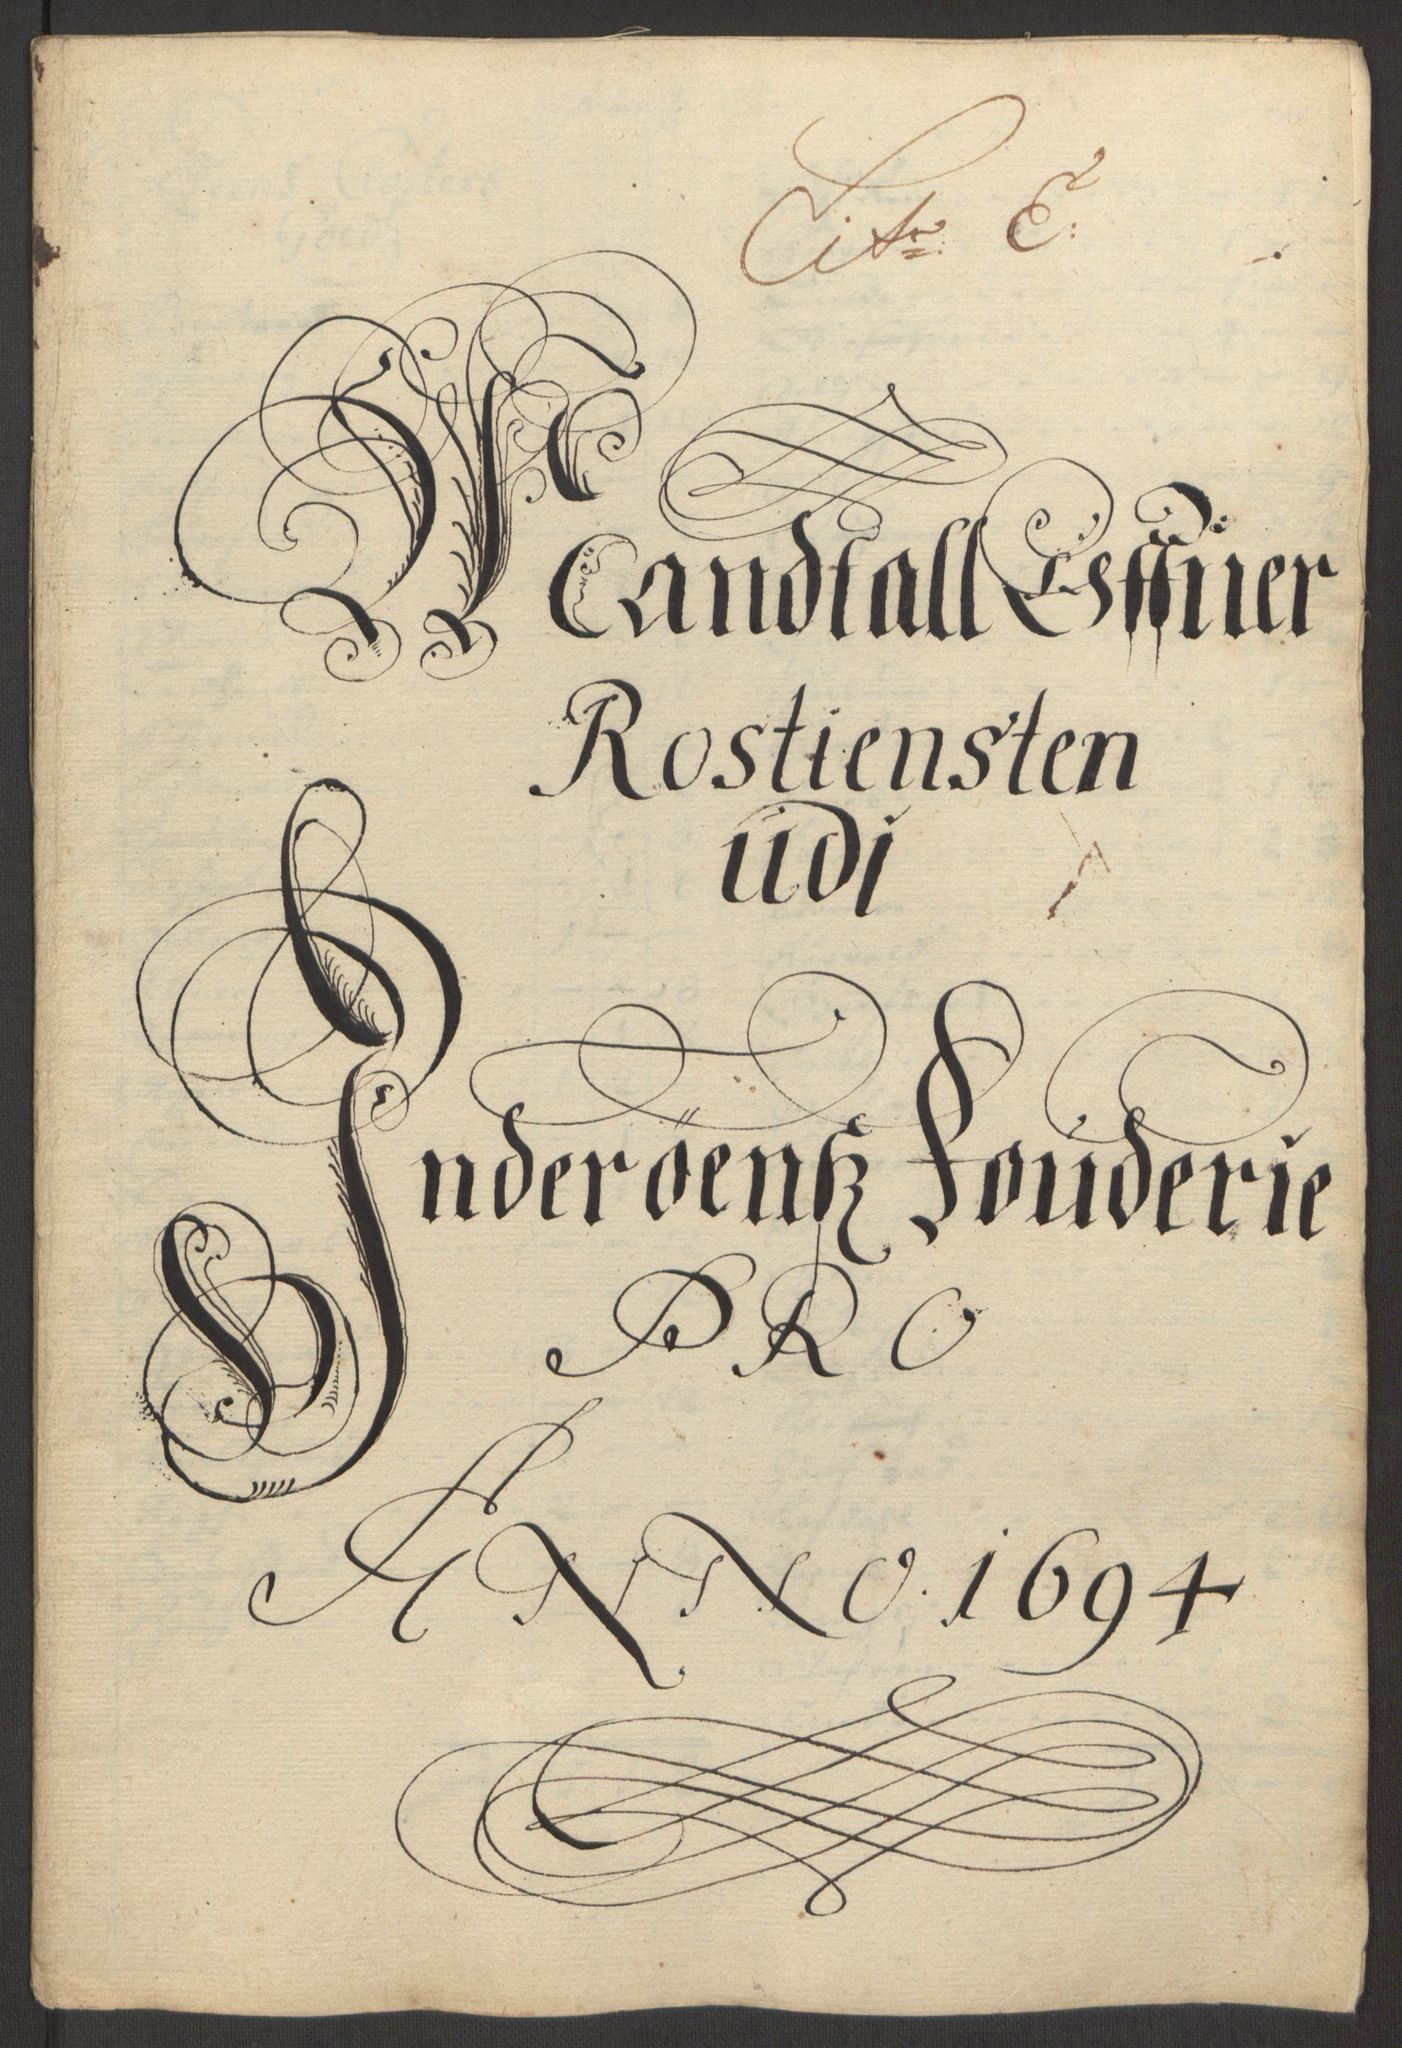 Litr: E:
Mandtall Efftuer
Rostiensten
udi
Inderöens Fouderie
PRO
ANNO. 1694